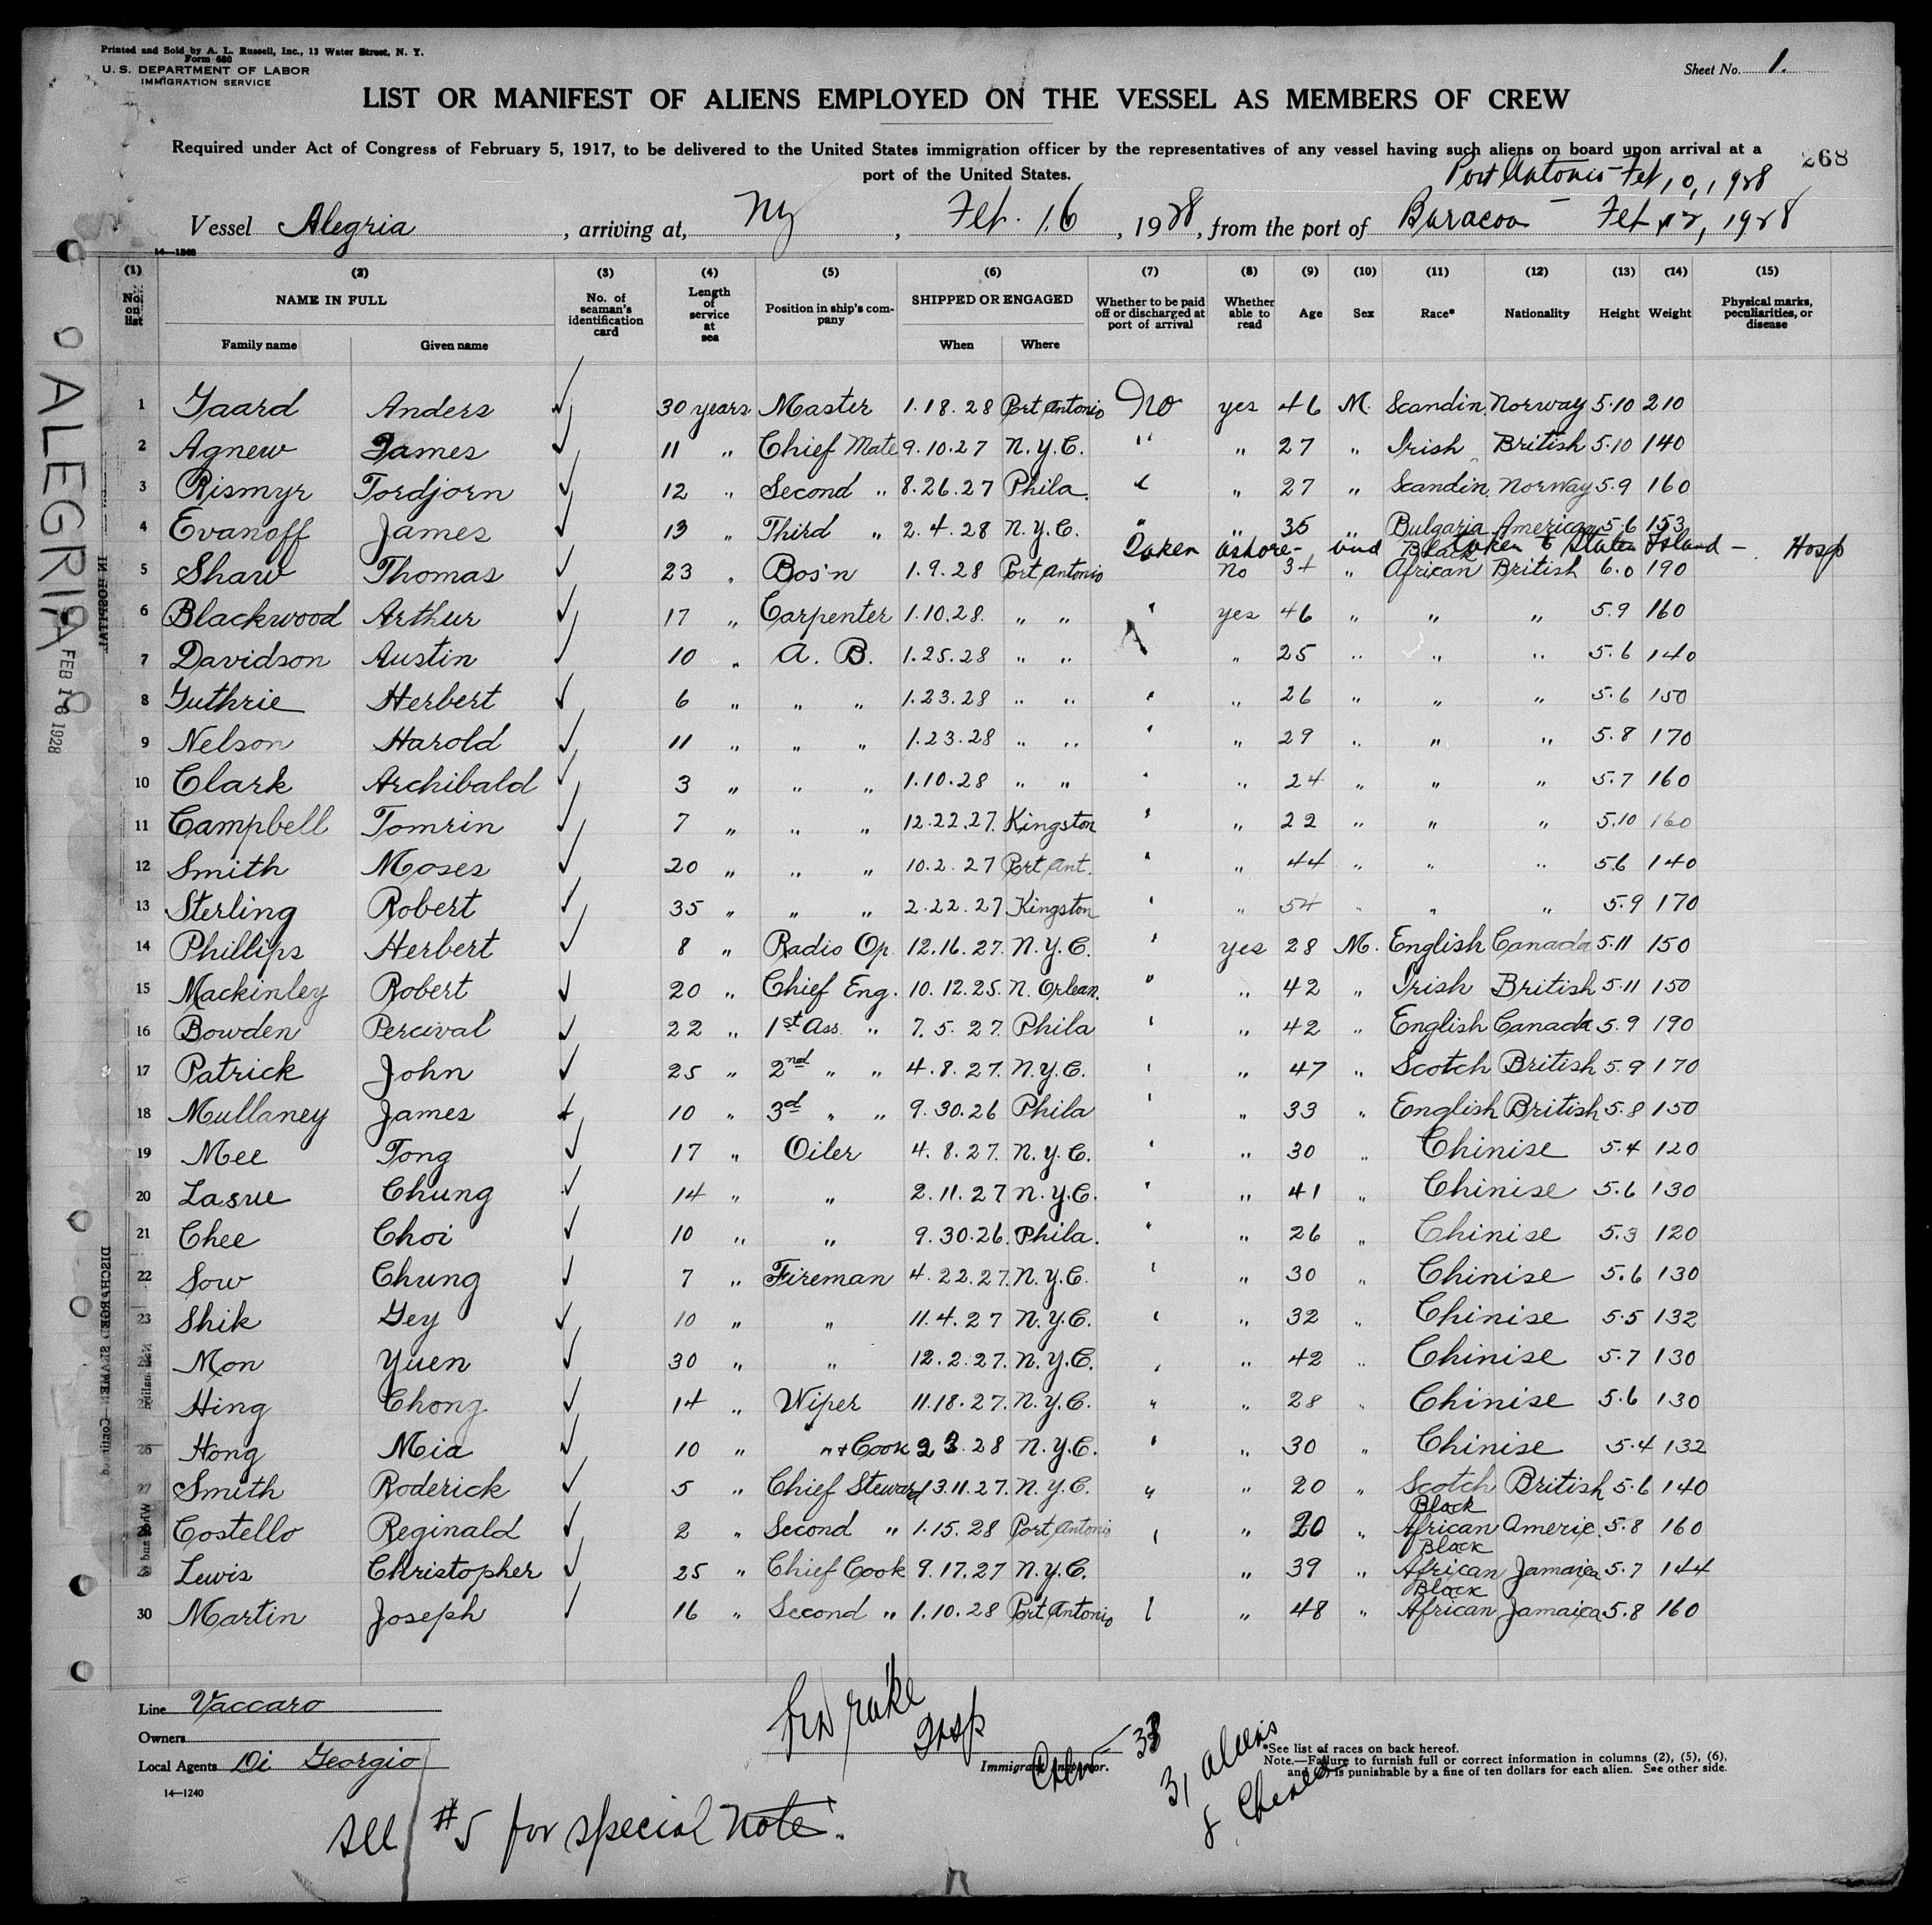 Printed and Sold by A. L. Russell, Inc., 13 Water Street, N. Y.
Form 680
U. S. DEPARTMENT OF LABOR
IMMIGRATION SERVICE
Sheet No. 1.
LIST OR MANIFEST OF ALIENS EMPLOYED ON THE VESSEL AS MEMBERS OF CREW
Required under Act of Congress of February 5, 1917, to be delivered to the United States immigration officer by the representatives of any vessel having such aliens on board upon arrival at a
port of the United States.
268
Port Antonio - Feb 10, 1928
Vessel Alegria, arriving at, NY, Feb. 16, 1928, from the port of Baracoa - Feb 12, 1928
14—1240
(1) (2) (3) (4) (5) (6) (7) (8) (9) (10) (11) (12) (13) (14) (15)
No. on list NAME IN FULL No. of seaman's identification card Length of service at sea Position in ship's company SHIPPED OR ENGAGED Whether to be paid off or discharged at port of arrival Whether able to read Age Sex Race* Nationality Height Weight Physical marks, peculiarities, or disease
Family name Given name When Where
1 Gaard Anders ✓ 30 years Master 1.18.28 Port Antonio No yes 46 M. Scandin. Norway 5.10 210
2 Agnew James ✓ 11 " Chief Mate 9.10.27 N.Y.C. " " 27 " Irish British 5.10 140
3 Rismyr Tordjorn ✓ 12 " Second " 8.26.27 Phila. " " 27 " Scandin. Norway 5.9 160
4 Evanoff James ✓ 13 " Third " 2.4.28 N.Y.C. " " 35 " Bulgaria American 5.6 153
Taken ashore - and taken to Staten Island - Hosp
Black
5 Shaw Thomas ✓ 23 " Bos'n 1.9.28 Port Antonio no 34 " African British 6.0 190
6 Blackwood Arthur ✓ 17 " Carpenter 1.10.28. " " " yes 46 " " " 5.9 160
7 Davidson Austin ✓ 10 " A. B. 1.25.28 " " " 25 " " " 5.6 140
8 Guthrie Herbert ✓ 6 " " " 1.23.28 " " " " 26 " " " 5.6 150
9 Nelson Harold ✓ 11 " " " 1.23.28 " " " " 29 " " " 5.8 170
10 Clark Archibald ✓ 3 " " " 1.10.28 " " " " 24 " " " 5.7 160
11 Campbell Tomrin ✓ 7 " " " 12.22.27. Kingston " " 22 " " " 5.10 160
12 Smith Moses ✓ 20 " " " 10.2.27 Port Ant. " " 44 " " " 5.6 140
13 Sterling Robert ✓ 35 " " " 2.22.27 Kingston " " 54 " " " 5.9 170
14 Phillips Herbert ✓ 8 " Radio Op. 12.16.27. N.Y.C. " yes 28 M. English Canada 5.11 150
15 Mackinley Robert ✓ 20 " Chief Eng. 10.12.25. N. Orlean. " " 42 " Irish British 5.11 150
16 Bowden Percival ✓ 22 " 1st Ass. " 7.5.27. Phila " " 42 " English Canada 5.9 190
17 Patrick John ✓ 25 " 2nd " " 4.8.27. N.Y.C. " " 47 " Scotch British 5.9 170
18 Mullaney James ✓ 10 " 3d " " 9.30.26 Phila " " 33 " English British 5.8 150
19 Mee Tong ✓ 17 " Oiler 4.8.27. N.Y.C. " " 30 " Chinise 5.4 120
20 Lasue Chung ✓ 14 " " 2.11.27 N.Y.C. " " 41 " Chinise 5.6 130
21 Chee Choi ✓ 10 " " 9.30.26. Phila. " " 26 " Chinise 5.3 120
22 Sow Chung ✓ 7 " Fireman 4.22.27. N.Y.C. " " 30 " Chinise 5.6 130
23 Shik Gey ✓ 10 " " 11.4.27 N.Y.C. " " 32 " Chinise 5.5 132
24 Mon Yuen ✓ 30 " " 12.2.27. N.Y.C. " " 42 " Chinise 5.7 130
25 Hing Chong ✓ 14 " Wiper 11.18.27. N.Y.C. " " 28 " Chinise 5.6 130
26 Hong Mia ✓ 10 " " + Cook 2 3.28 N.Y.C. " " 30 " Chinise 5.4 132
27 Smith Roderick ✓ 5 " Chief Steward 13.11.27. N.Y.C. " " 20 " Scotch British 5.6 140
Black
28 Costello Reginald ✓ 2 " Second " 1.15.28 Port Antonio " " 20 " African Americ. 5.8 160
Black
29 Lewis Christopher ✓ 25 " Chief Cook 9.17.27 N.Y.C. " 39 " African Jamaica 5.7 144
Black
30 Martin Joseph ✓ 16 " Second " 1.10.28 Port Antonio " " 48 " African Jamaica 5.8 160
ALEGRIA
FEB 16 1928
Line Vaccaro
Owners
Local Agents Di Georgio
14—1240
Drake
Insp
Immigrant Inspector.
Crew - 38
31 aliens
8
*See list of races on back hereof.
Note.—Failure to furnish full or correct information in columns (2), (5), (6),
and (7) is punishable by a fine of ten dollars for each alien. See other side.
see #5 for special note.